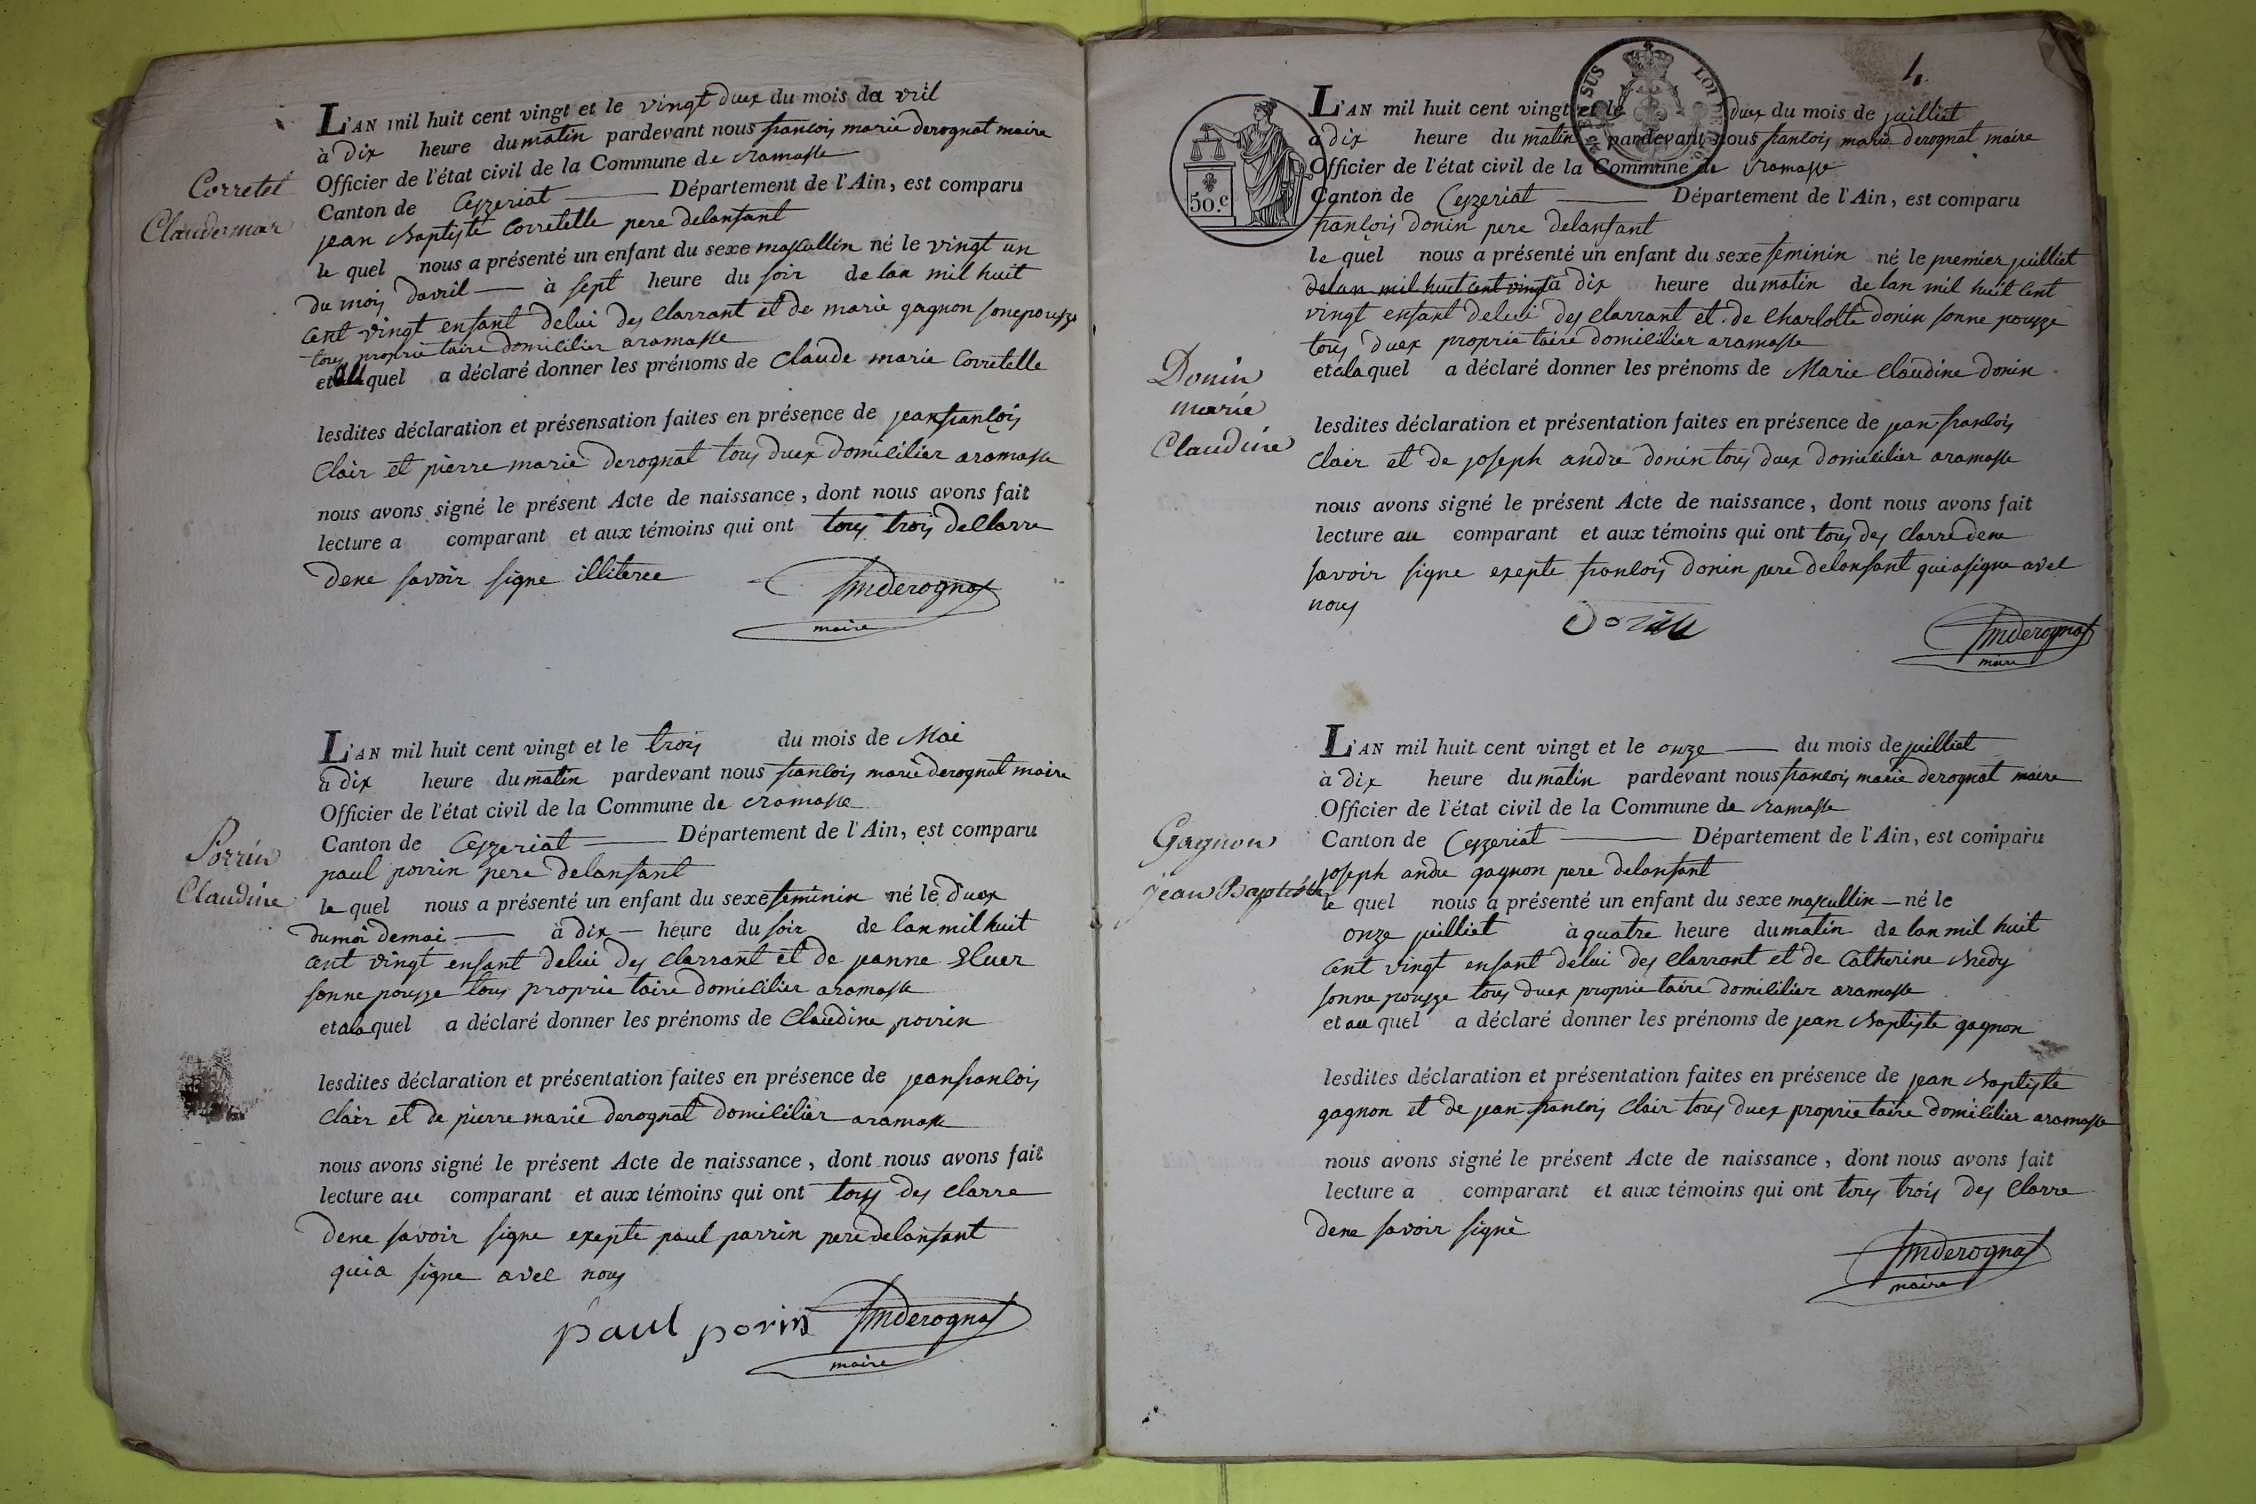 L'AN mil huit cent vingt et le vingt duex du mois da vril
à dix heure du matin pardevant nous francois marie derognat maire
Officier de l'état civil de la Commune de ramasse
Canton de Ceyzeriat Département de l'Ain, est comparu
jean Baptiste Corretelle pere delanfant
le quel nous a présenté un enfant du sexe mascullin né le vingt un
du mois davril à sept heure du soir de lan mil huit
cent vingt enfant delui des clarrant et de marie gagnon sonepousze
tous proprie taire domicilier aramasse
et au quel a déclaré donner les prénoms de Claude marie Corretelle
Corretel
Claude marie
lesdites déclaration et présensation faites en présence de jean francois
Clair et pierre marie derognat tous duex domicilier aramasse
nous avons signé le présent Acte de naissance, dont nous avons fait
lecture a comparant et aux témoins qui ont tous trois de Clarre
dene savoir signe illiteree
fmderognat
maire
L'AN mil huit cent vingt et le trois du mois de Mai
à dix heure du matin pardevant nous francois marie derognat maire
Officier de l'état civil de la Commune de ramasse
Canton de Ceyzeriat Département de l'Ain, est comparu
paul porrin pere delanfant
le quel nous a présenté un enfant du sexe feminin né le duex
du moi de mai à dix heure du soir de lan mil huit
cent vingt enfant delui des clarrant et de jeanne
sonne pousze tous proprie taire domicilier aramasse
et ala quel a déclaré donner les prénoms de Claudine porrin
Porrin
Claudine
lesdites déclaration et présentation faites en présence de jean francois
Clair et de pierre marie derognat domicilier aramasse
nous avons signé le présent Acte de naissance, dont nous avons fait
lecture au comparant et aux témoins qui ont tous des clarre
dene savoir signe exepte paul porrin pere delanfant
qui a signe avec nous
paul porin fmderognat
maire
4
SUS
LOI DE
50.c
L'AN mil huit cent vingt et le duex du mois de juilliet
à dix heure du matin pardevant nous francois marie derognat maire
Officier de l'état civil de la Commune de ramasse
Canton de Ceyzeriat Département de l'Ain, est comparu
francois donin pere delanfant
le quel nous a présenté un enfant du sexe feminin né le premier juilliet
delan mil huit cent vingt à dix heure du matin de lan mil huit cent
vingt enfant delui des clarrant et de Charlotte donin sonne pousze
tous duex proprie taire domicilier aramasse
et ala quel a déclaré donner les prénoms de Marie Claudine donin
Donin
marie
Claudine
lesdites déclaration et présentation faites en présence de jean francois
Clair et de joseph andre donin tous duex domicilier aramasse
nous avons signé le présent Acte de naissance, dont nous avons fait
lecture au comparant et aux témoins qui ont tous des clarre dene
savoir signe exepte francois donin pere delanfant qui a signe avec
nous
donin
fmderognat
maire
L'AN mil huit cent vingt et le onze du mois de juilliet
à dix heure du matin pardevant nous francois marie derognat maire
Officier de l'état civil de la Commune de ramasse
Canton de Ceyzeriat Département de l'Ain, est comparu
joseph andre gagnon pere delanfant
le quel nous a présenté un enfant du sexe mascullin né le
onze juilliet à quatre heure du matin de lan mil huit
cent vingt enfant delui des clarrant et de Catherine Bredy
sonne pousze tous duex proprie taire domicilier aramasse
et au quel a déclaré donner les prénoms de jean Baptiste gagnon
Gagnon
jean Baptiste
lesdites déclaration et présentation faites en présence de jean Baptiste
gagnon et de jean francois Clair tous duex proprie taire domicilier aramasse
nous avons signé le présent Acte de naissance, dont nous avons fait
lecture a comparant et aux témoins qui ont tous trois des Clarre
dene savoir signé
fmderognat
maire